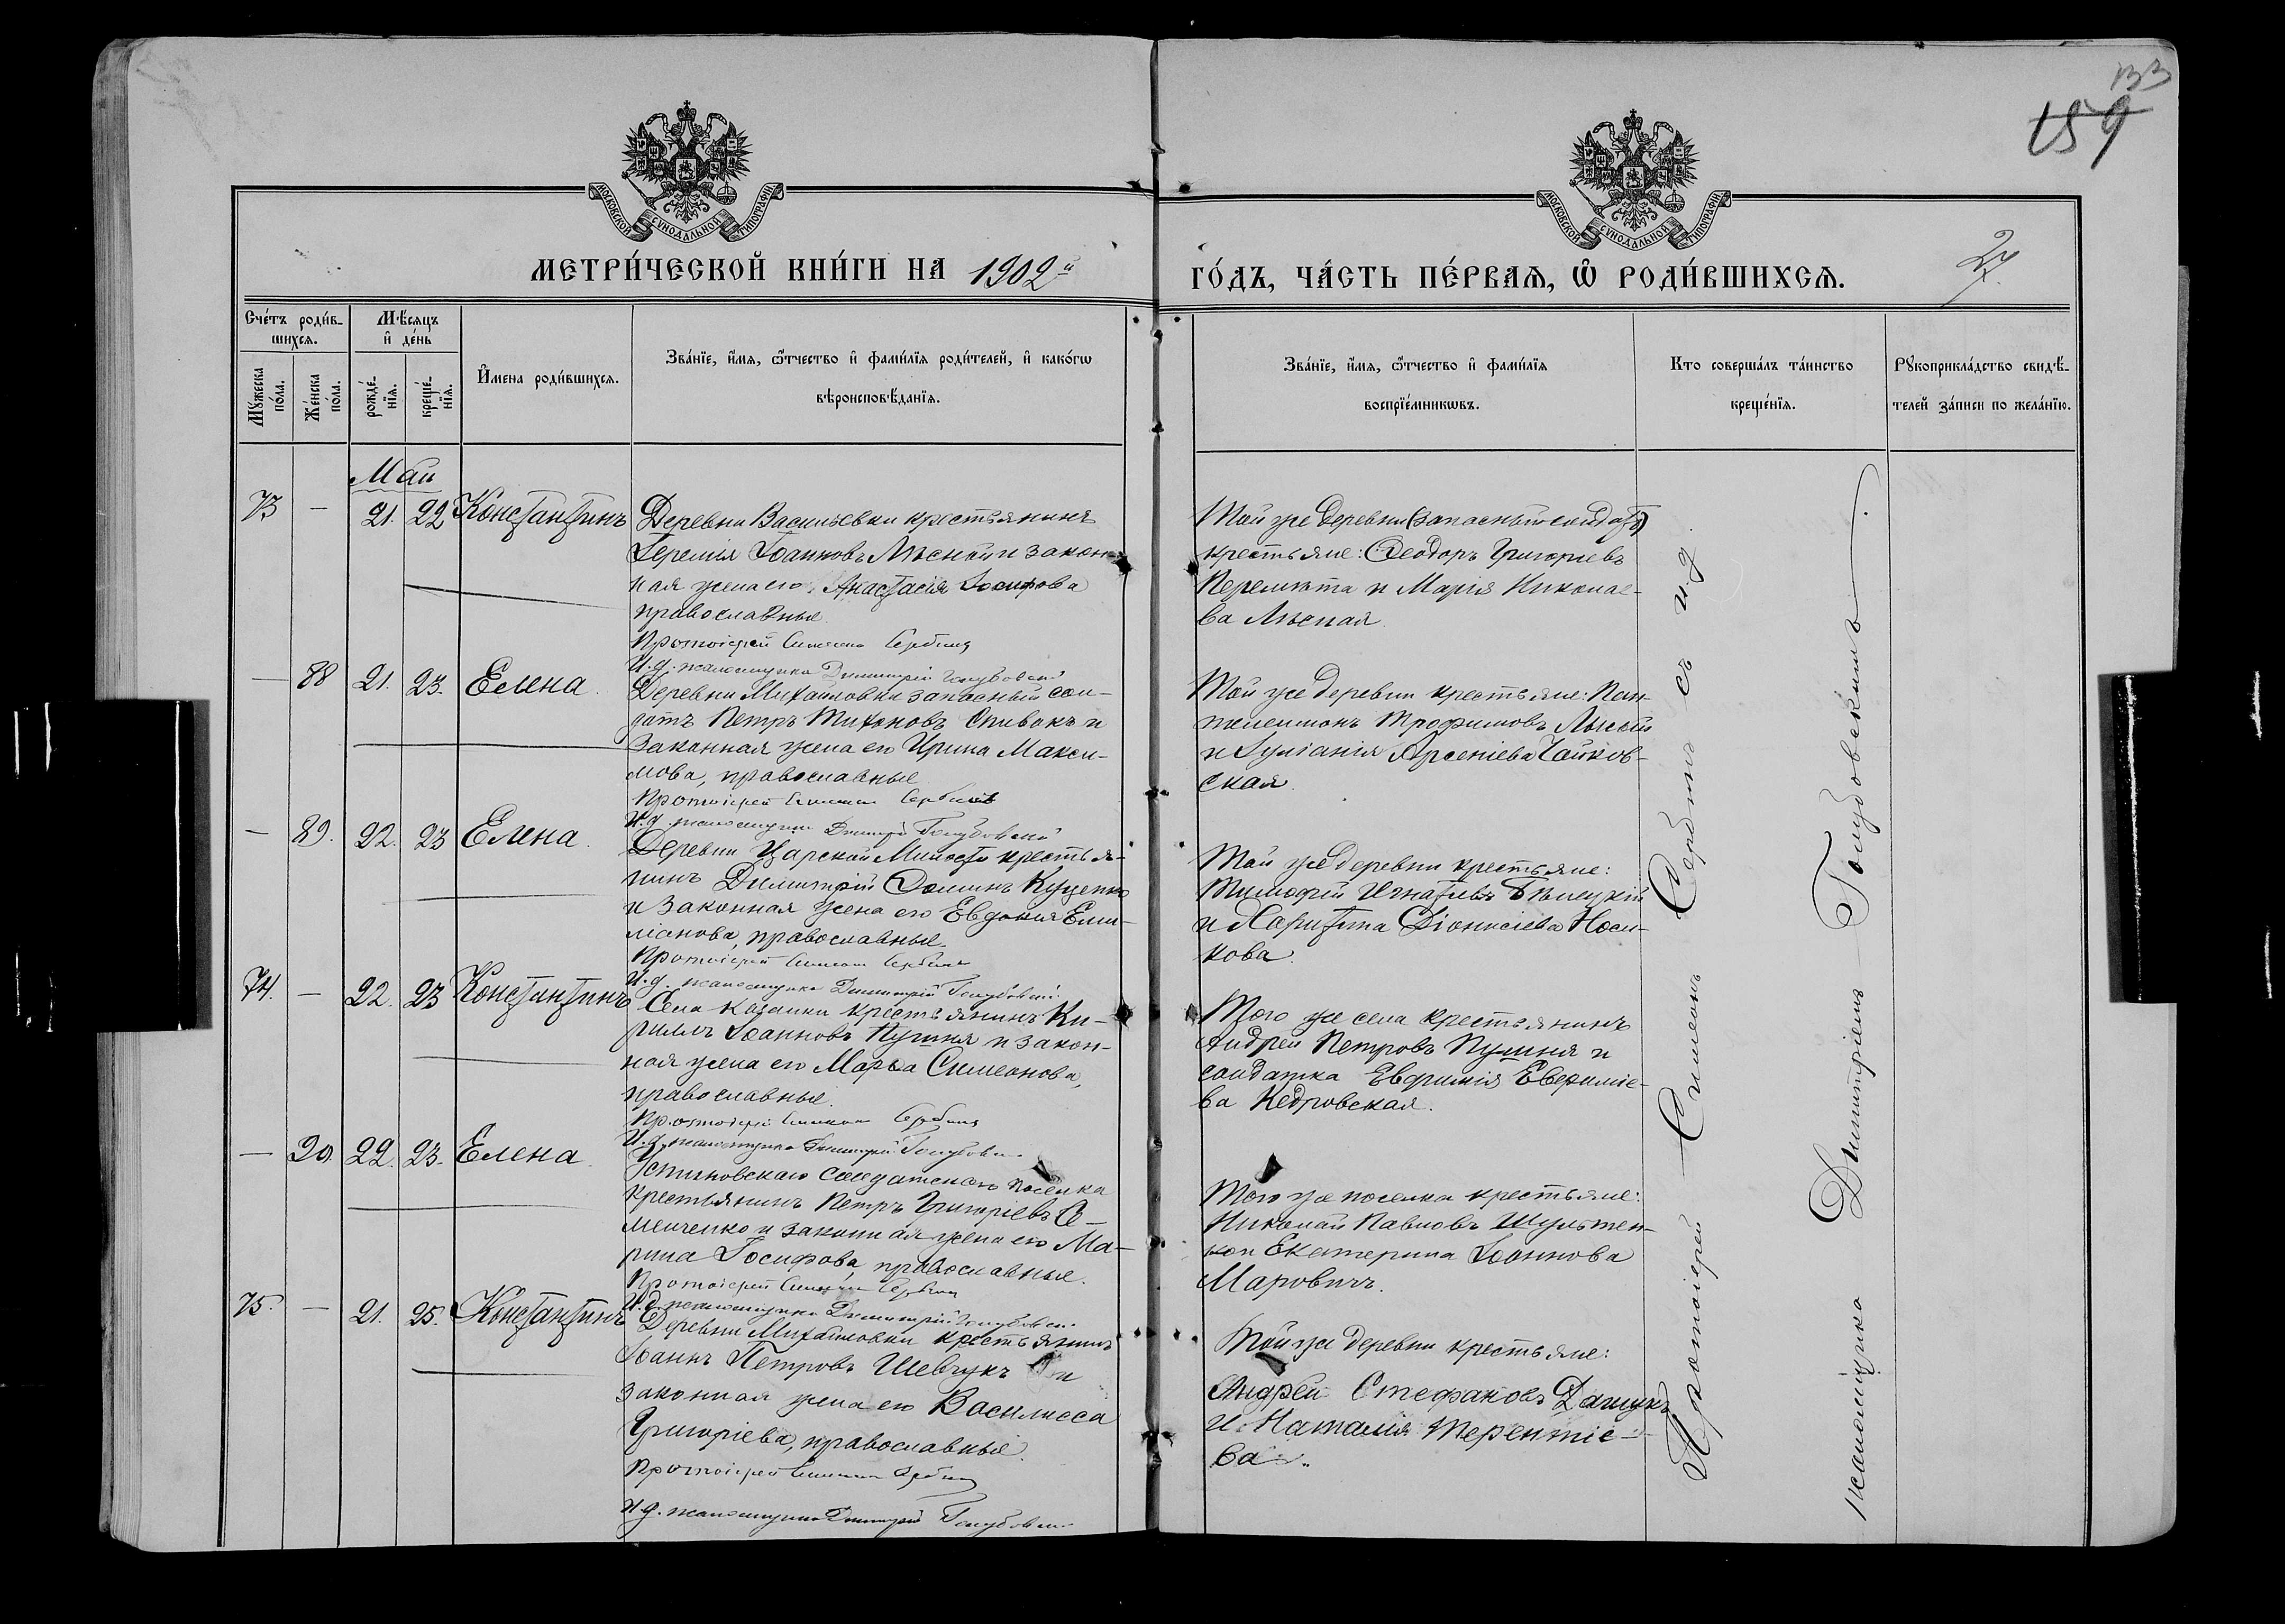 133
159
27
МОСКОВСКОЙ СѴНОДАЛЬНОЙ ТИПОГРАФІИ
МОСКОВСКОЙ СѴНОДАЛЬНОЙ ТИПОГРАФІИ
МЕТРИ́ЧЕСКОЙ КНИ́ГИ НА 1902й
ГО́ДЪ, ЧА́СТЬ ПЕ́РВАѦ, Ѡ҆ РОДИ́ВШИХСѦ.
Сче́тъ роди́в-
шихсѧ.
Мꙋ́жеска по́ла.
Же́нска по́ла.
Мѣ́сѧцъ
и҆ де́нь
рожде́-
нїѧ.
креще́-
нїѧ.
И҆мена роди́вшихсѧ.
Зва́нїе, и҆́мѧ, ѻ҆́тчество и҆ фами́лїѧ роди́телей, и҆ како́гѡ
вѣроисповѣ́данїѧ.
Зва́нїе, и҆́мѧ, ѻ҆́тчество и҆ фами́лїѧ
воспрїе́мникѡвъ.
Кто соверша́лъ та́инство
креще́нїѧ.
Рꙋкоприкла́дство свидѣ́-
телей за́писи по жела́нїю.
Май
73 — 21. 22 Константинъ
Деревни Васильевки крестьянинъ
Іеремія Іоанновъ Лѣсной и закон-
ная жена его Анастасія Іосифова
православные.
Протоіерей Симеонъ Сербинъ
И. д. псаломщика Димитрій Голубовскій
Той же деревни (запасный солдатъ)
крестьяне: Ѳеодоръ Григорьевъ
Перемѣта и Марія Николае-
ва Лѣсная.
— 88 21. 23. Елена.
Деревни Михайловки запасный сол-
датъ Петръ Тихоновъ Спивакъ и
законная жена его Ирина Макси-
мова, православные
Протоіерей Симеонъ Сербинъ
И. д. псаломщика Димитрій Голубовскій
Той же деревни крестьяне: Пан-
телеимонъ Трофимовъ Лысый
и Іуліанія Арсеніева Чайков-
ская.
— 89. 22. 23 Елена.
Деревни Царской Милости крестья-
нинъ Димитрій Ѳоминъ Куценко
и законная жена его Евдокія Еми-
ліанова, православные.
Протоіерей Симеонъ Сербинъ
И. д. псаломщика Димитрій Голубовскій
Той же деревни крестьяне:
Тимофей Игнатьевъ Бѣлецкій
и Харитина Діонисіева Носи-
кова.
74. — 22. 23 Константинъ
Села Казанки крестьянинъ Ки-
риллъ Іоанновъ и закон-
ная жена его Марѳа Симеонова,
православные.
Протоіерей Симеонъ Сербинъ
И. д. псаломщика Димитрій Голубовскій
Того же села крестьянинъ
Андрей Петровъ и
солдатка Евфимія Евѳиміе-
ва Кедровская.
— 90. 22. 23. Елена.
Устиновскаго солдатскаго поселка
крестьянинъ Петръ Григоріевъ Се-
менченко и законная жена его Ма-
рина Іосифова православные.
Протоіерей Симеонъ Сербинъ
И. д. псаломщика Димитрій Голубовскій
Того же поселка крестьяне:
Николай Павловъ Шульжен-
ко и Екатерина Іоаннова
Маровичъ.
75. — 21. 25. Константинъ
Деревни Михайловки крестьянинъ
Іоаннъ Петровъ Шевчукъ и
законная жена его Василисса
Григоріева, православные.
Протоіерей Симеонъ Сербинъ
И. д. псаломщика Димитрій Голубовскій
Той же деревни крестьяне:
Андрей Стефановъ Дащукъ
и Наталія Терентіе-
ва.
Протоіерей Симеонъ Сербинъ съ и. д.
псаломщика Димитріемъ Голубовскимъ.